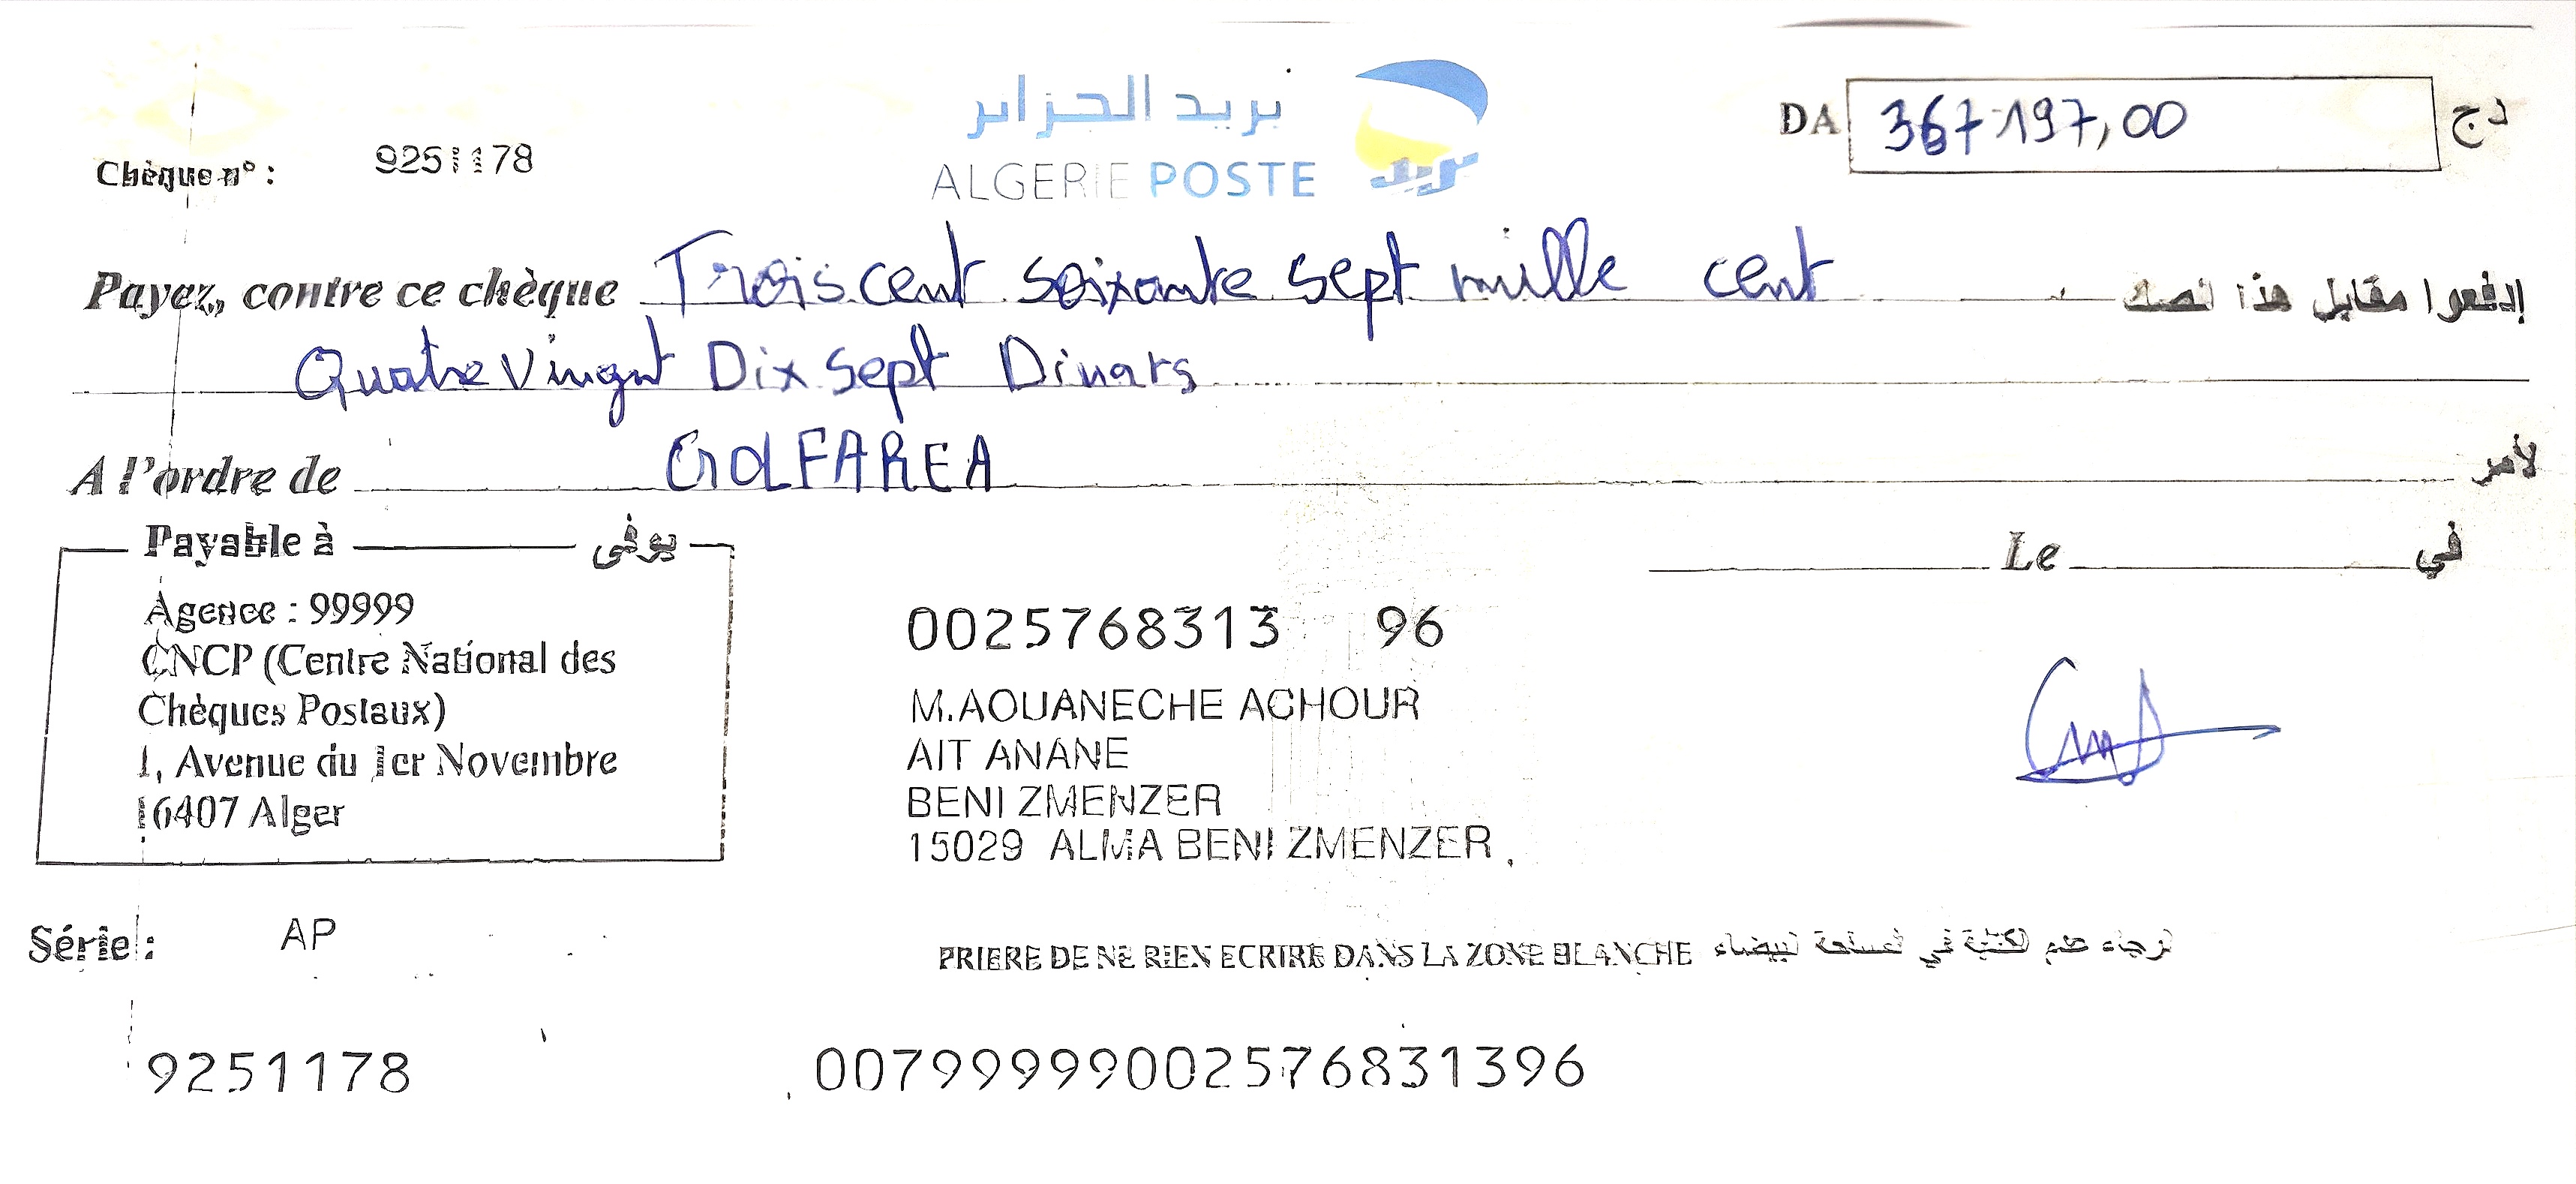 بريد الجزائر
ALGERIE POSTE
بريد
DA 367 197,00 دج
Chèque n° : 9251178
Payez, contre ce chèque Trois cent soixante sept mille cent إدفعوا مقابل هذا الصك
Quatre Vingt Dix Sept Dinars
A l'ordre de GOLFAREA لأمر
Payable à يوفى
Le في
Agence : 99999
CNCP (Centre National des
Chèques Postaux)
1, Avenue du 1er Novembre
16407 Alger
0025768313 96
M.AOUANECHE ACHOUR
AIT ANANE
BENI ZMENZER
15029 ALMA BENI ZMENZER
Série : AP
PRIERE DE NE RIEN ECRIRE DANS LA ZONE BLANCHE الرجاء عدم الكتابة في المساحة البيضاء
9251178
00799999002576831396